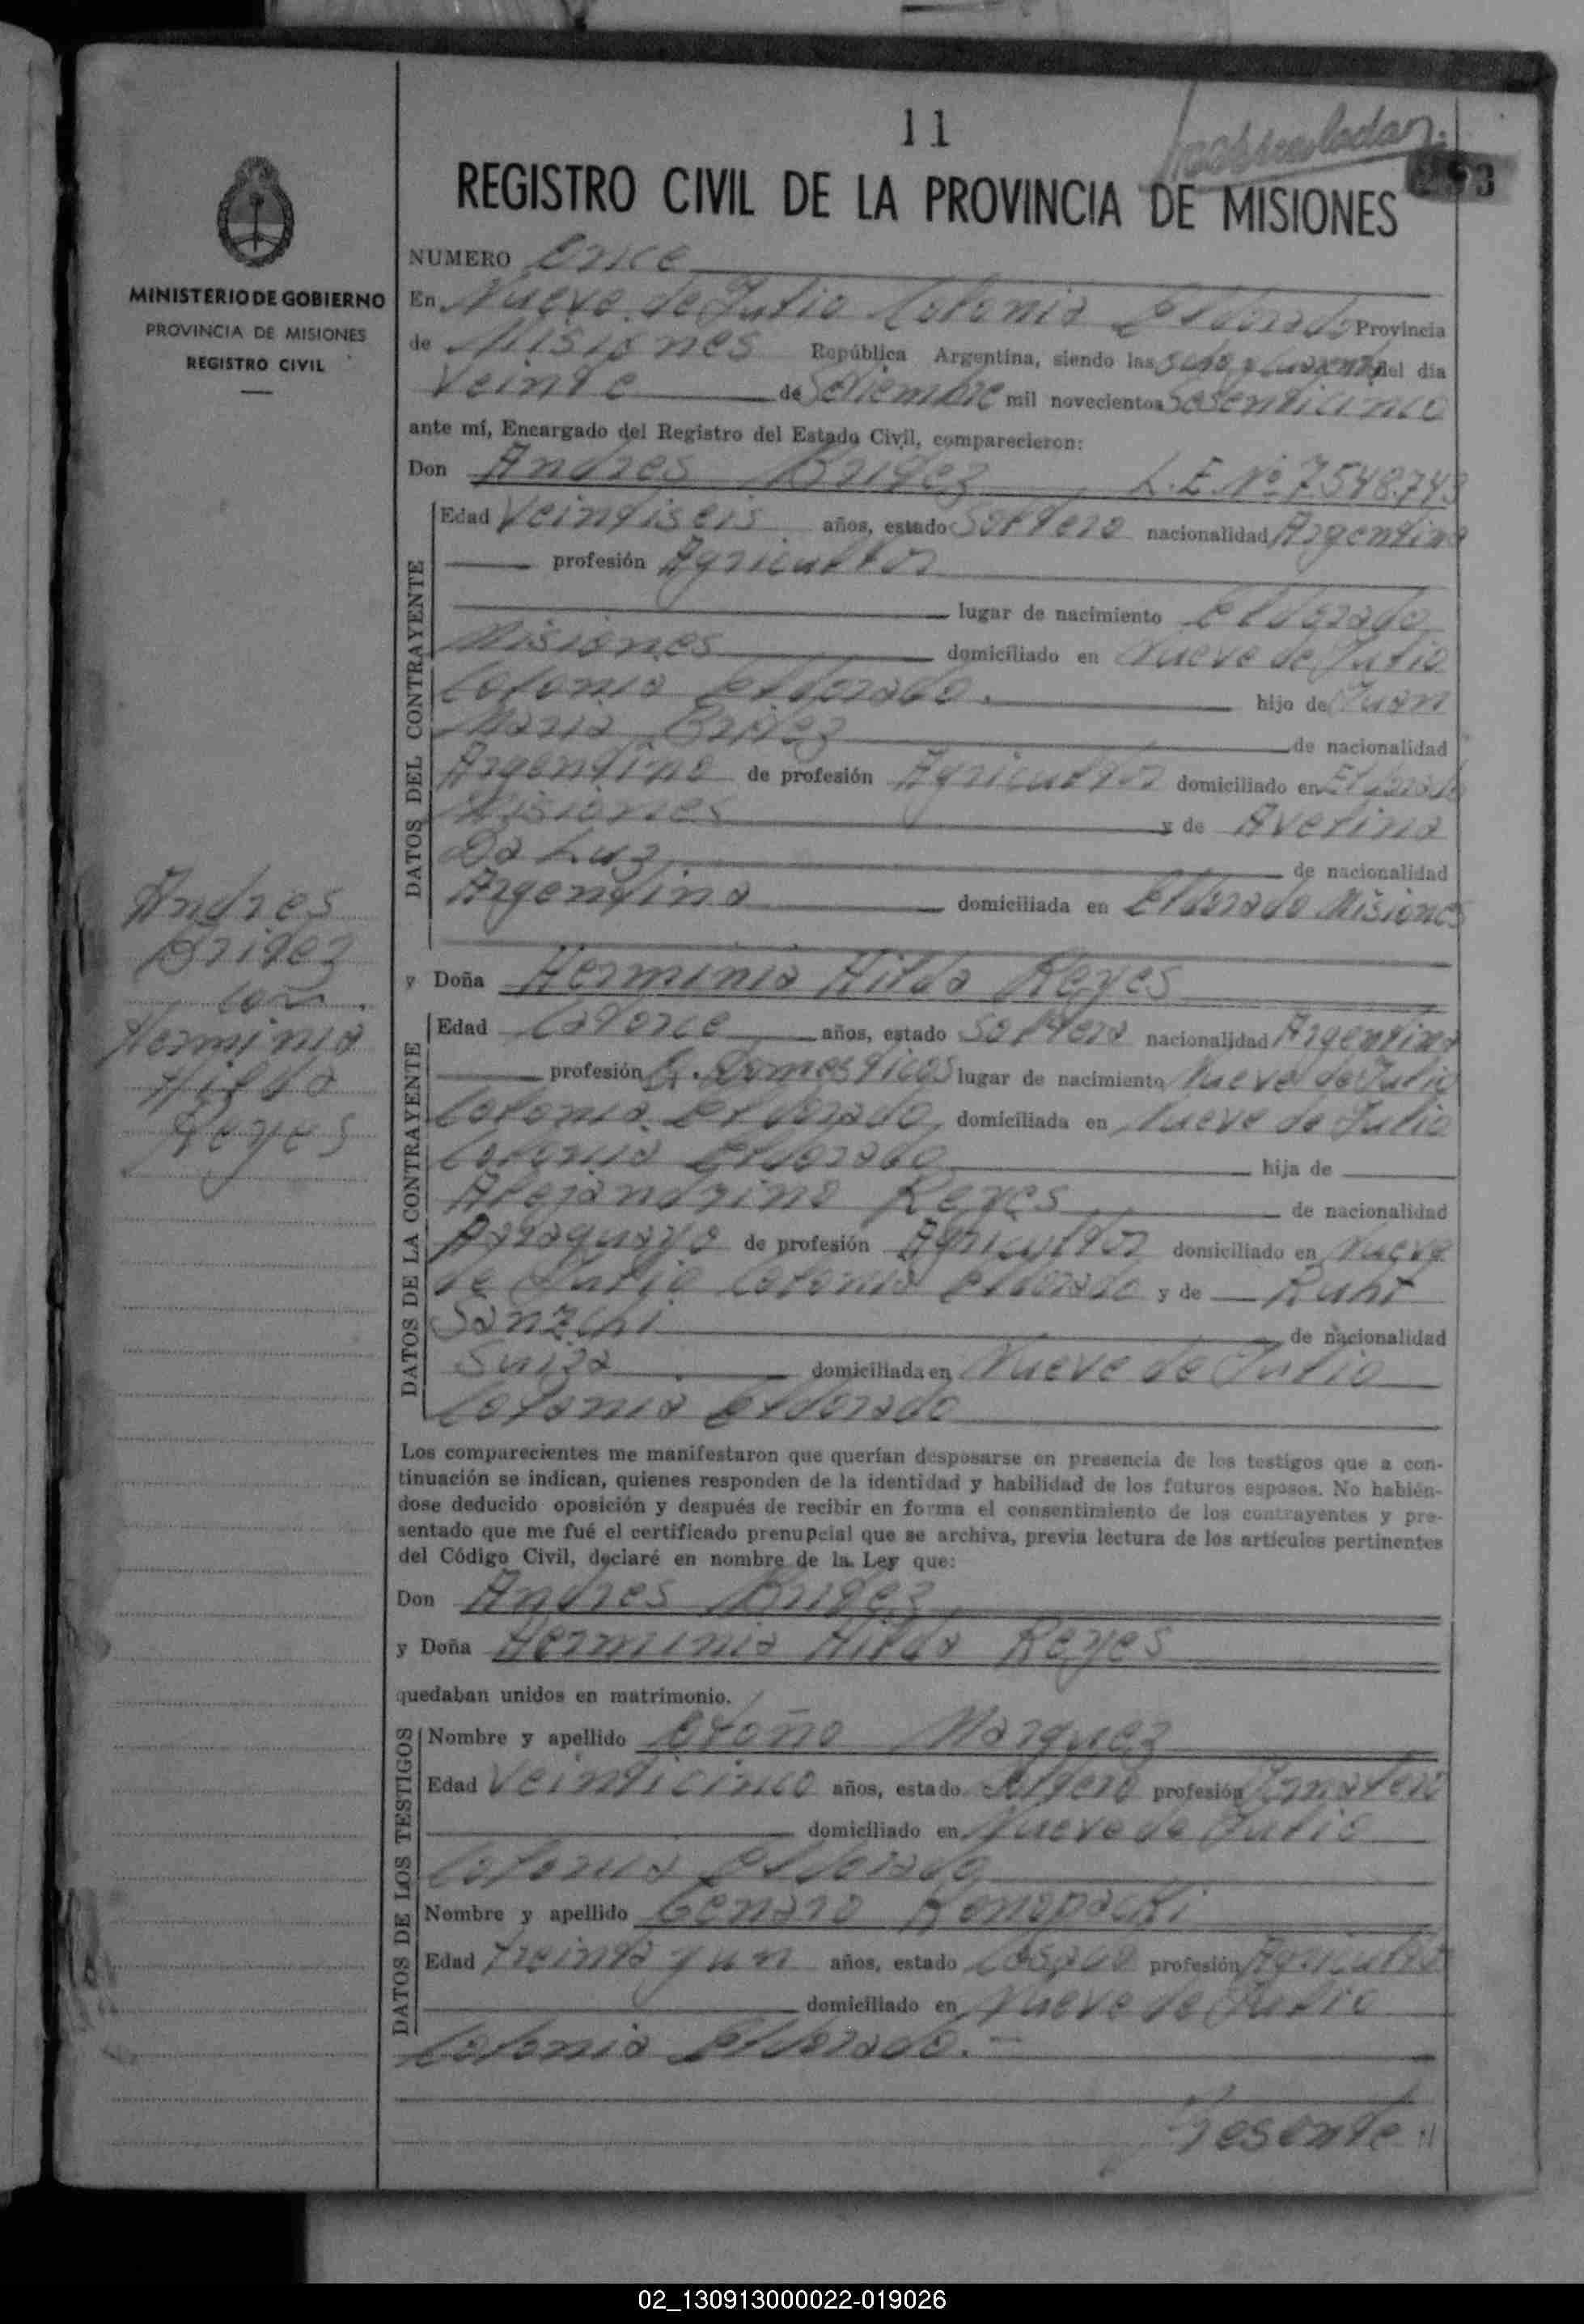 11
REGISTRO CIVIL DE LA PROVINCIA DE MISIONES
MINISTERIO DE GOBIERNO
PROVINCIA DE MISIONES
REGISTRO CIVIL
NUMERO Once
En Nueve de Julio Colonia Eldorado Provincia
de Misiones República Argentina, siendo las del día
Veinte de Setiembre mil novecientos Sesenticinco
ante mí, Encargado del Registro del Estado Civil, comparecieron:
Don Andres Britez L.E. Nº 7.548.743
DATOS DEL CONTRAYENTE
Edad Veintiseis años, estado Soltero nacionalidad Argentino
profesión Agricultor
lugar de nacimiento Eldorado
Misiones domiciliado en Nueve de Julio
Colonia Eldorado. hijo de Juan
Maria Britez de nacionalidad
Argentino de profesión Agricultor domiciliado en Eldorado
Misiones y de Avelina
Da Luz de nacionalidad
Argentina domiciliada en Eldorado Misiones
Andres
Britez
con
Herminia
Hilda
Reyes
y Doña Herminia Hilda Reyes
DATOS DE LA CONTRAYENTE
Edad Catorce años, estado Soltera nacionalidad Argentina
profesión Q. Domesticos lugar de nacimiento Nueve de Julio
Colonia Eldorado, domiciliada en Nueve de Julio
Colonia Eldorado hija de
Alejandrino Reyes de nacionalidad
Paraguayo de profesión Agricultor domiciliado en Nueve
de Julio Colonia Eldorado y de Ruht
Sanzchi de nacionalidad
Suiza domiciliada en Nueve de Julio
Colonia Eldorado
Los comparecientes me manifestaron que querían desposarse en presencia de los testigos que a con-
tinuación se indican, quienes responden de la identidad y habilidad de los futuros esposos. No habién-
dose deducido oposición y después de recibir en forma el consentimiento de los contrayentes y pre-
sentado que me fué el certificado prenupcial que se archiva, previa lectura de los artículos pertinentes
del Código Civil, declaré en nombre de la Ley que:
Don Andres Britez
y Doña Herminia Hilda Reyes
quedaban unidos en matrimonio.
DATOS DE LOS TESTIGOS
Nombre y apellido Otoño Marquez
Edad Veinticinco años, estado Soltero profesión Jornalero
domiciliado en Nueve de Julio
Colonia Eldorado
Nombre y apellido Genaro Konopacki
Edad treinta y un años, estado Casado profesión Agricultor
domiciliado en Nueve de Julio
Colonia Eldorado.-
Presente
02_130913000022-019026